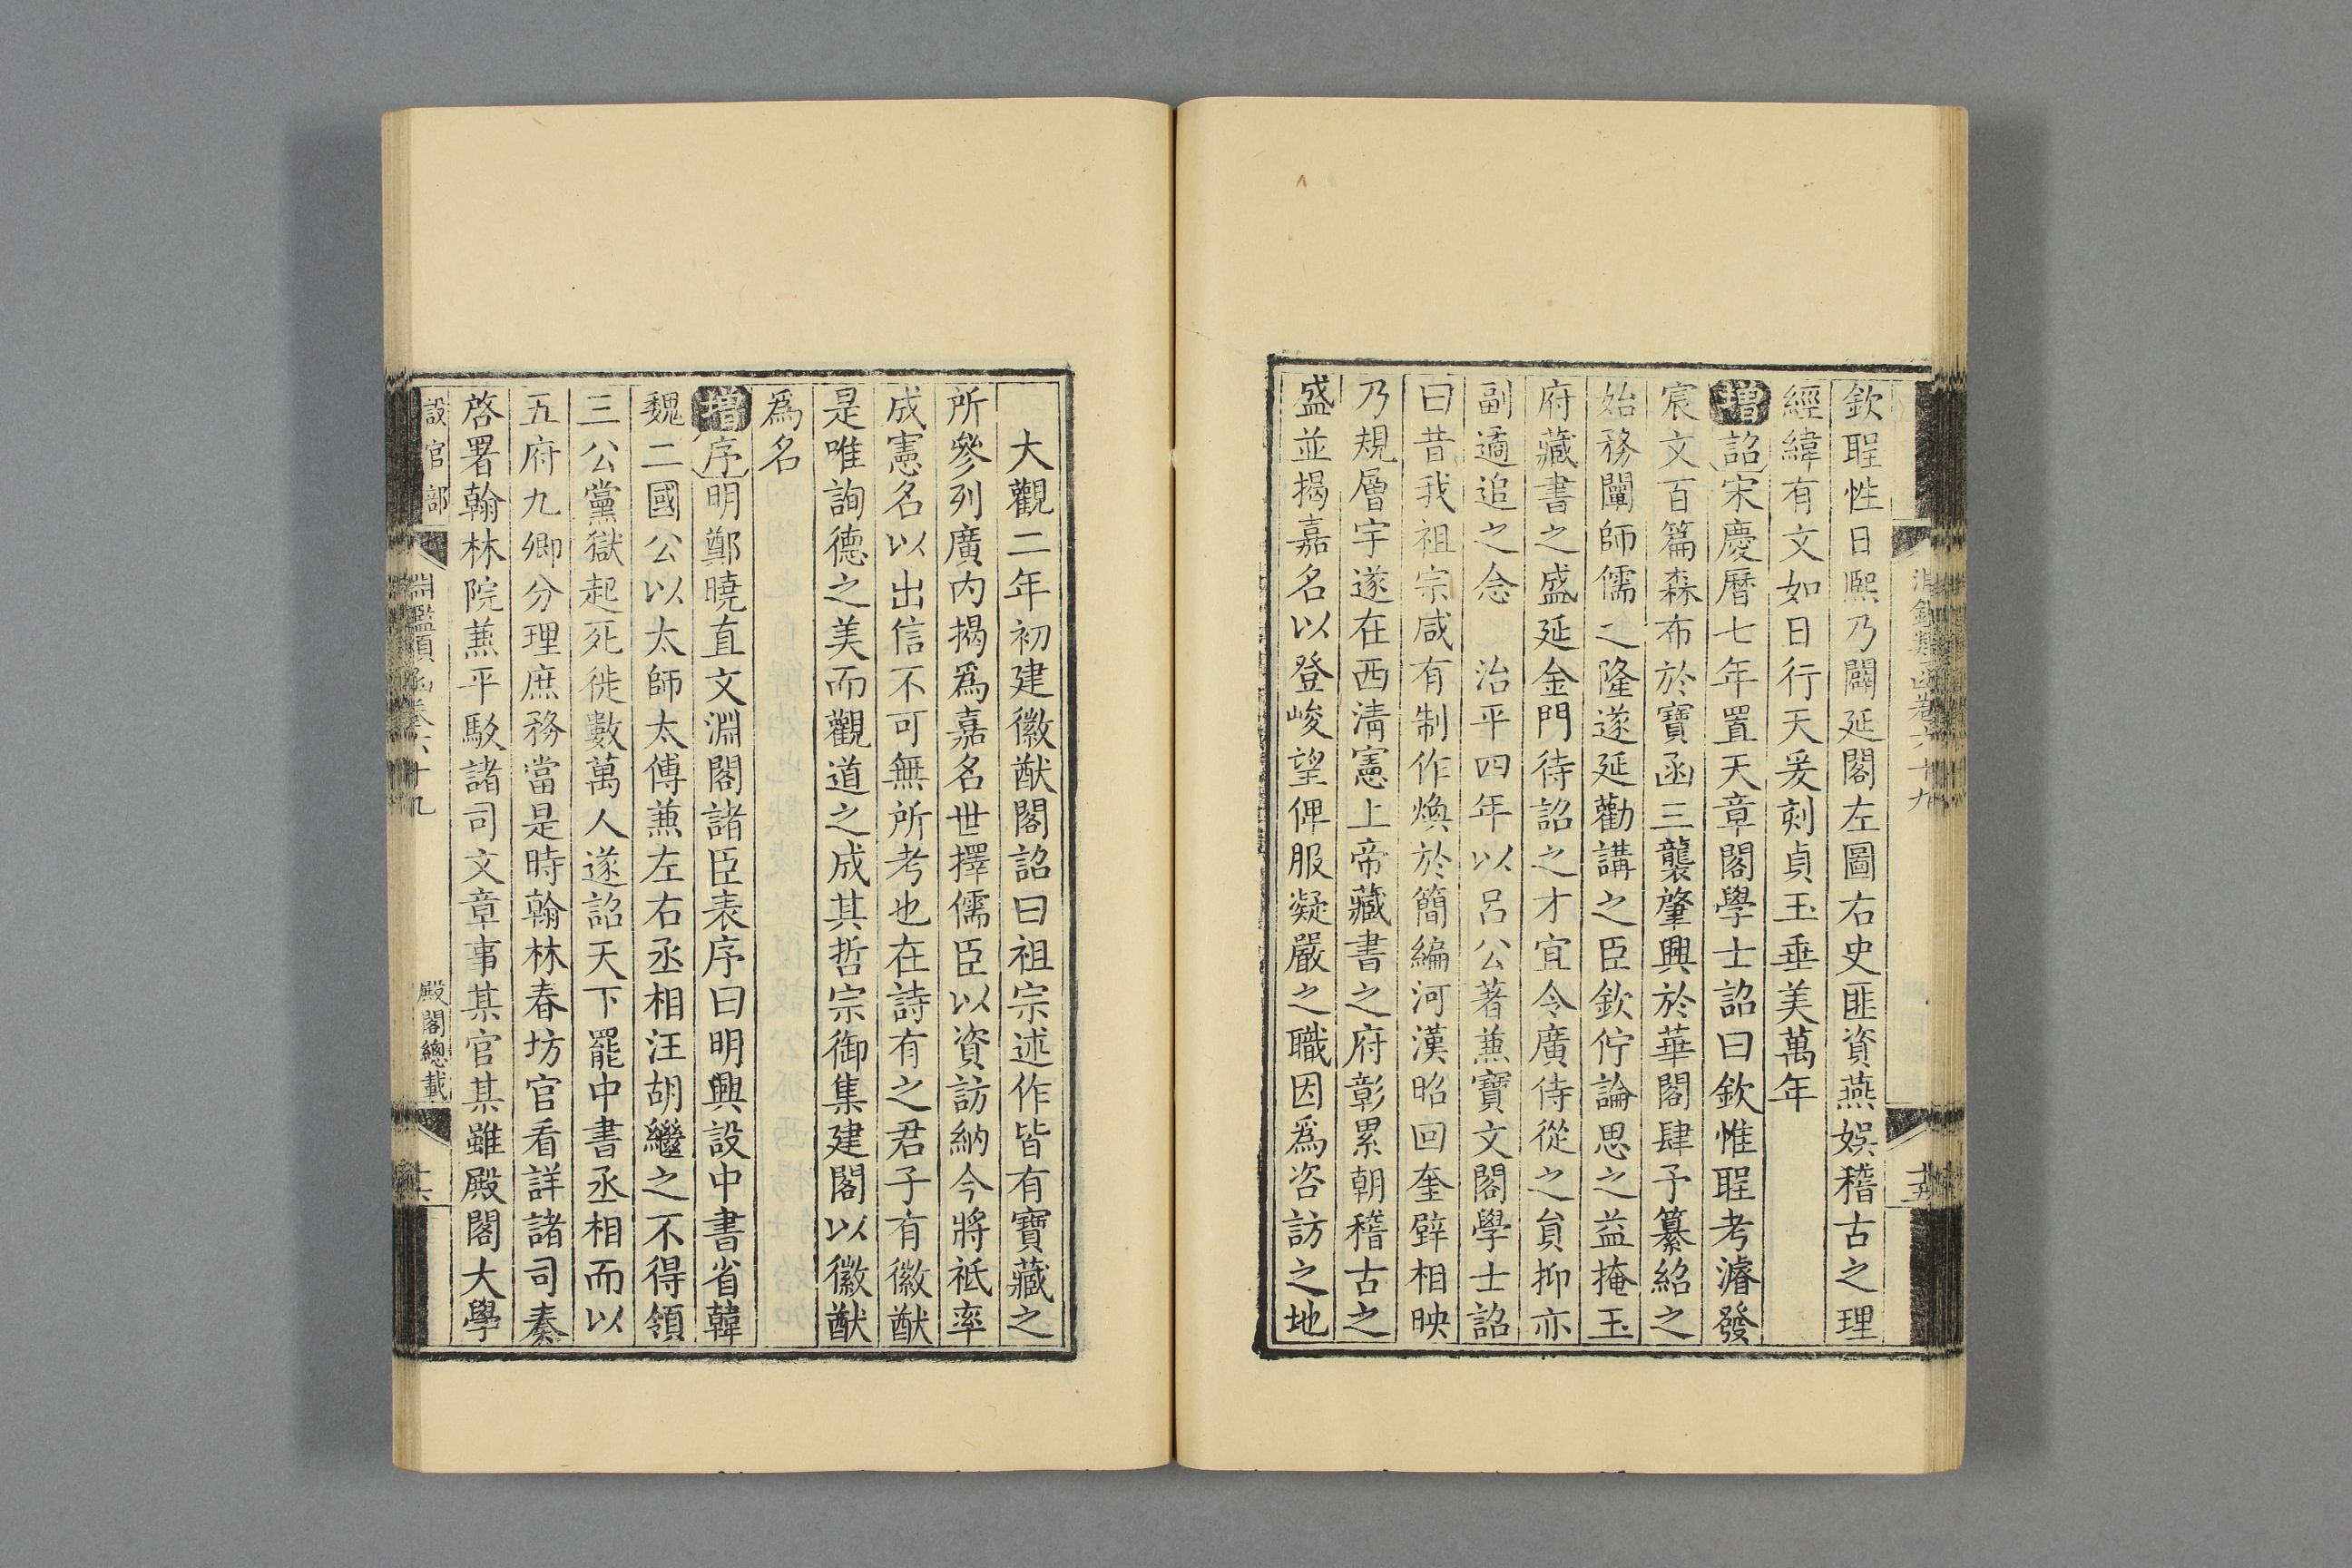 淵鑑類函卷六十九
欽聖性日熙乃闢延閣左圖右史匪資燕娛稽古之理
經緯有文如日行天爰刻貞玉垂美萬年
增詔宋慶曆七年置天章閣學士詔曰欽惟聖考濬發
宸文百篇森布於寶函三襲肇興於華閣肆予纂紹之
始務闡師儒之隆遂延勸講之臣欽佇論思之益掩玉
府藏書之盛延金門待詔之才宜令廣侍從之員抑亦
副遹追之念 治平四年以呂公著兼寶文閣學士詔
曰昔我祖宗咸有制作煥於簡編河漢昭回奎壁相映
乃規層宇遂在西清憲上帝藏書之府彰累朝稽古之
盛並揭嘉名以登峻望俾服凝嚴之職因爲咨訪之地
大觀二年初建徽猷閣詔曰祖宗述作皆有寶藏之
所參列廣內揭爲嘉名世擇儒臣以資訪納今將祗率
成憲名以出信不可無所考也在詩有之君子有徽猷
是唯詢德之美而觀道之成其哲宗御集建閣以徽猷
爲名
增序明鄭曉直文淵閣諸臣表序曰明興設中書省韓
魏二國公以太師太傅兼左右丞相汪胡繼之不得領
三公黨獄起死徙數萬人遂詔天下罷中書丞相而以
五府九卿分理庶務當是時翰林春坊官看詳諸司奏
啓署翰林院兼平駁諸司文章事某官某雖殿閣大學
設官部 淵鑑類函卷六十九 殿閣總載 十六